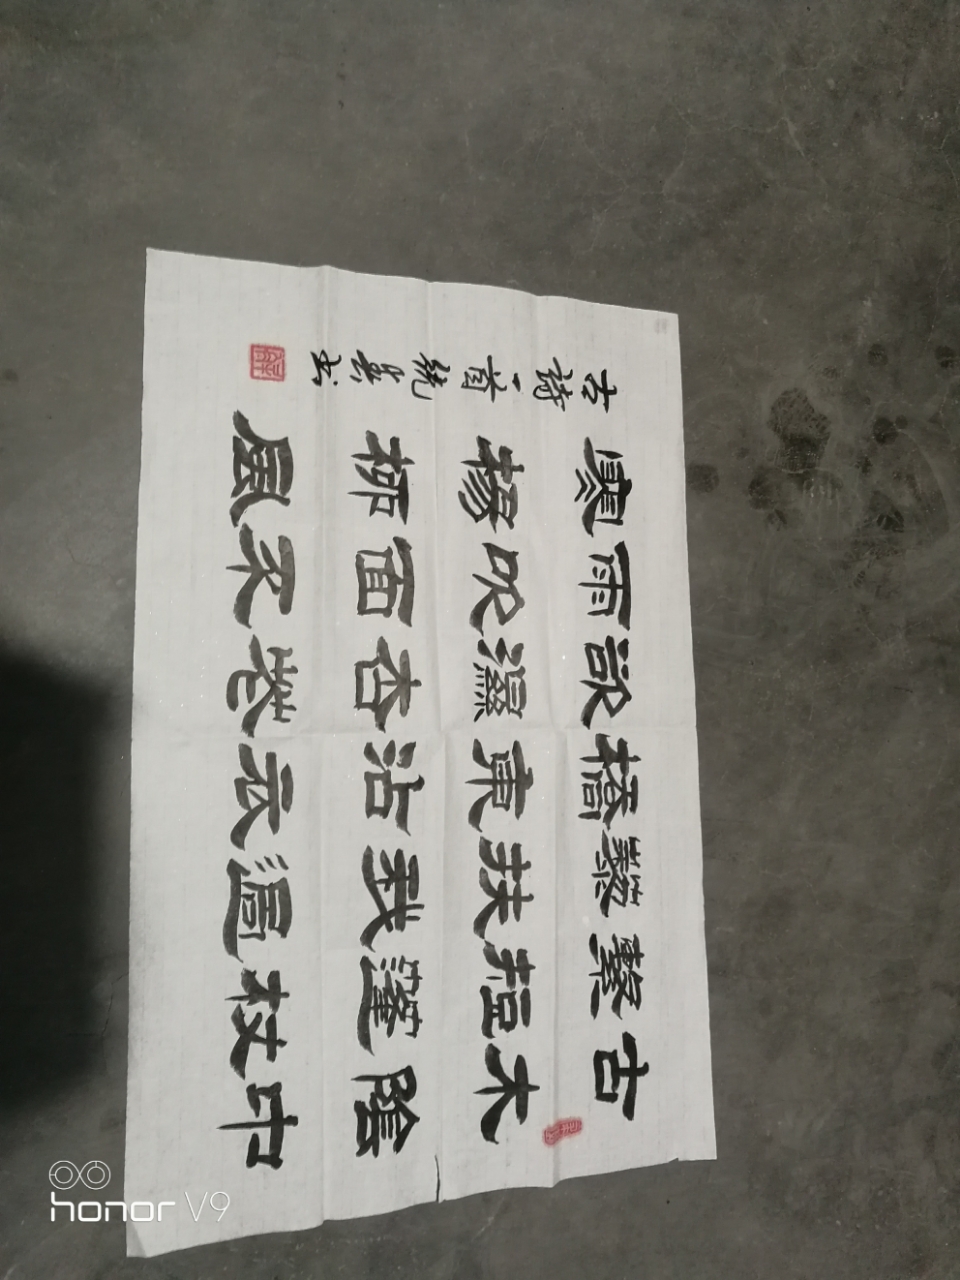 古木陰中
繫短篷杖
藜扶我過
橋東沾衣
欲濕杏花
雨吹面不
寒楊柳風
古詩一首 统 书
honor V9